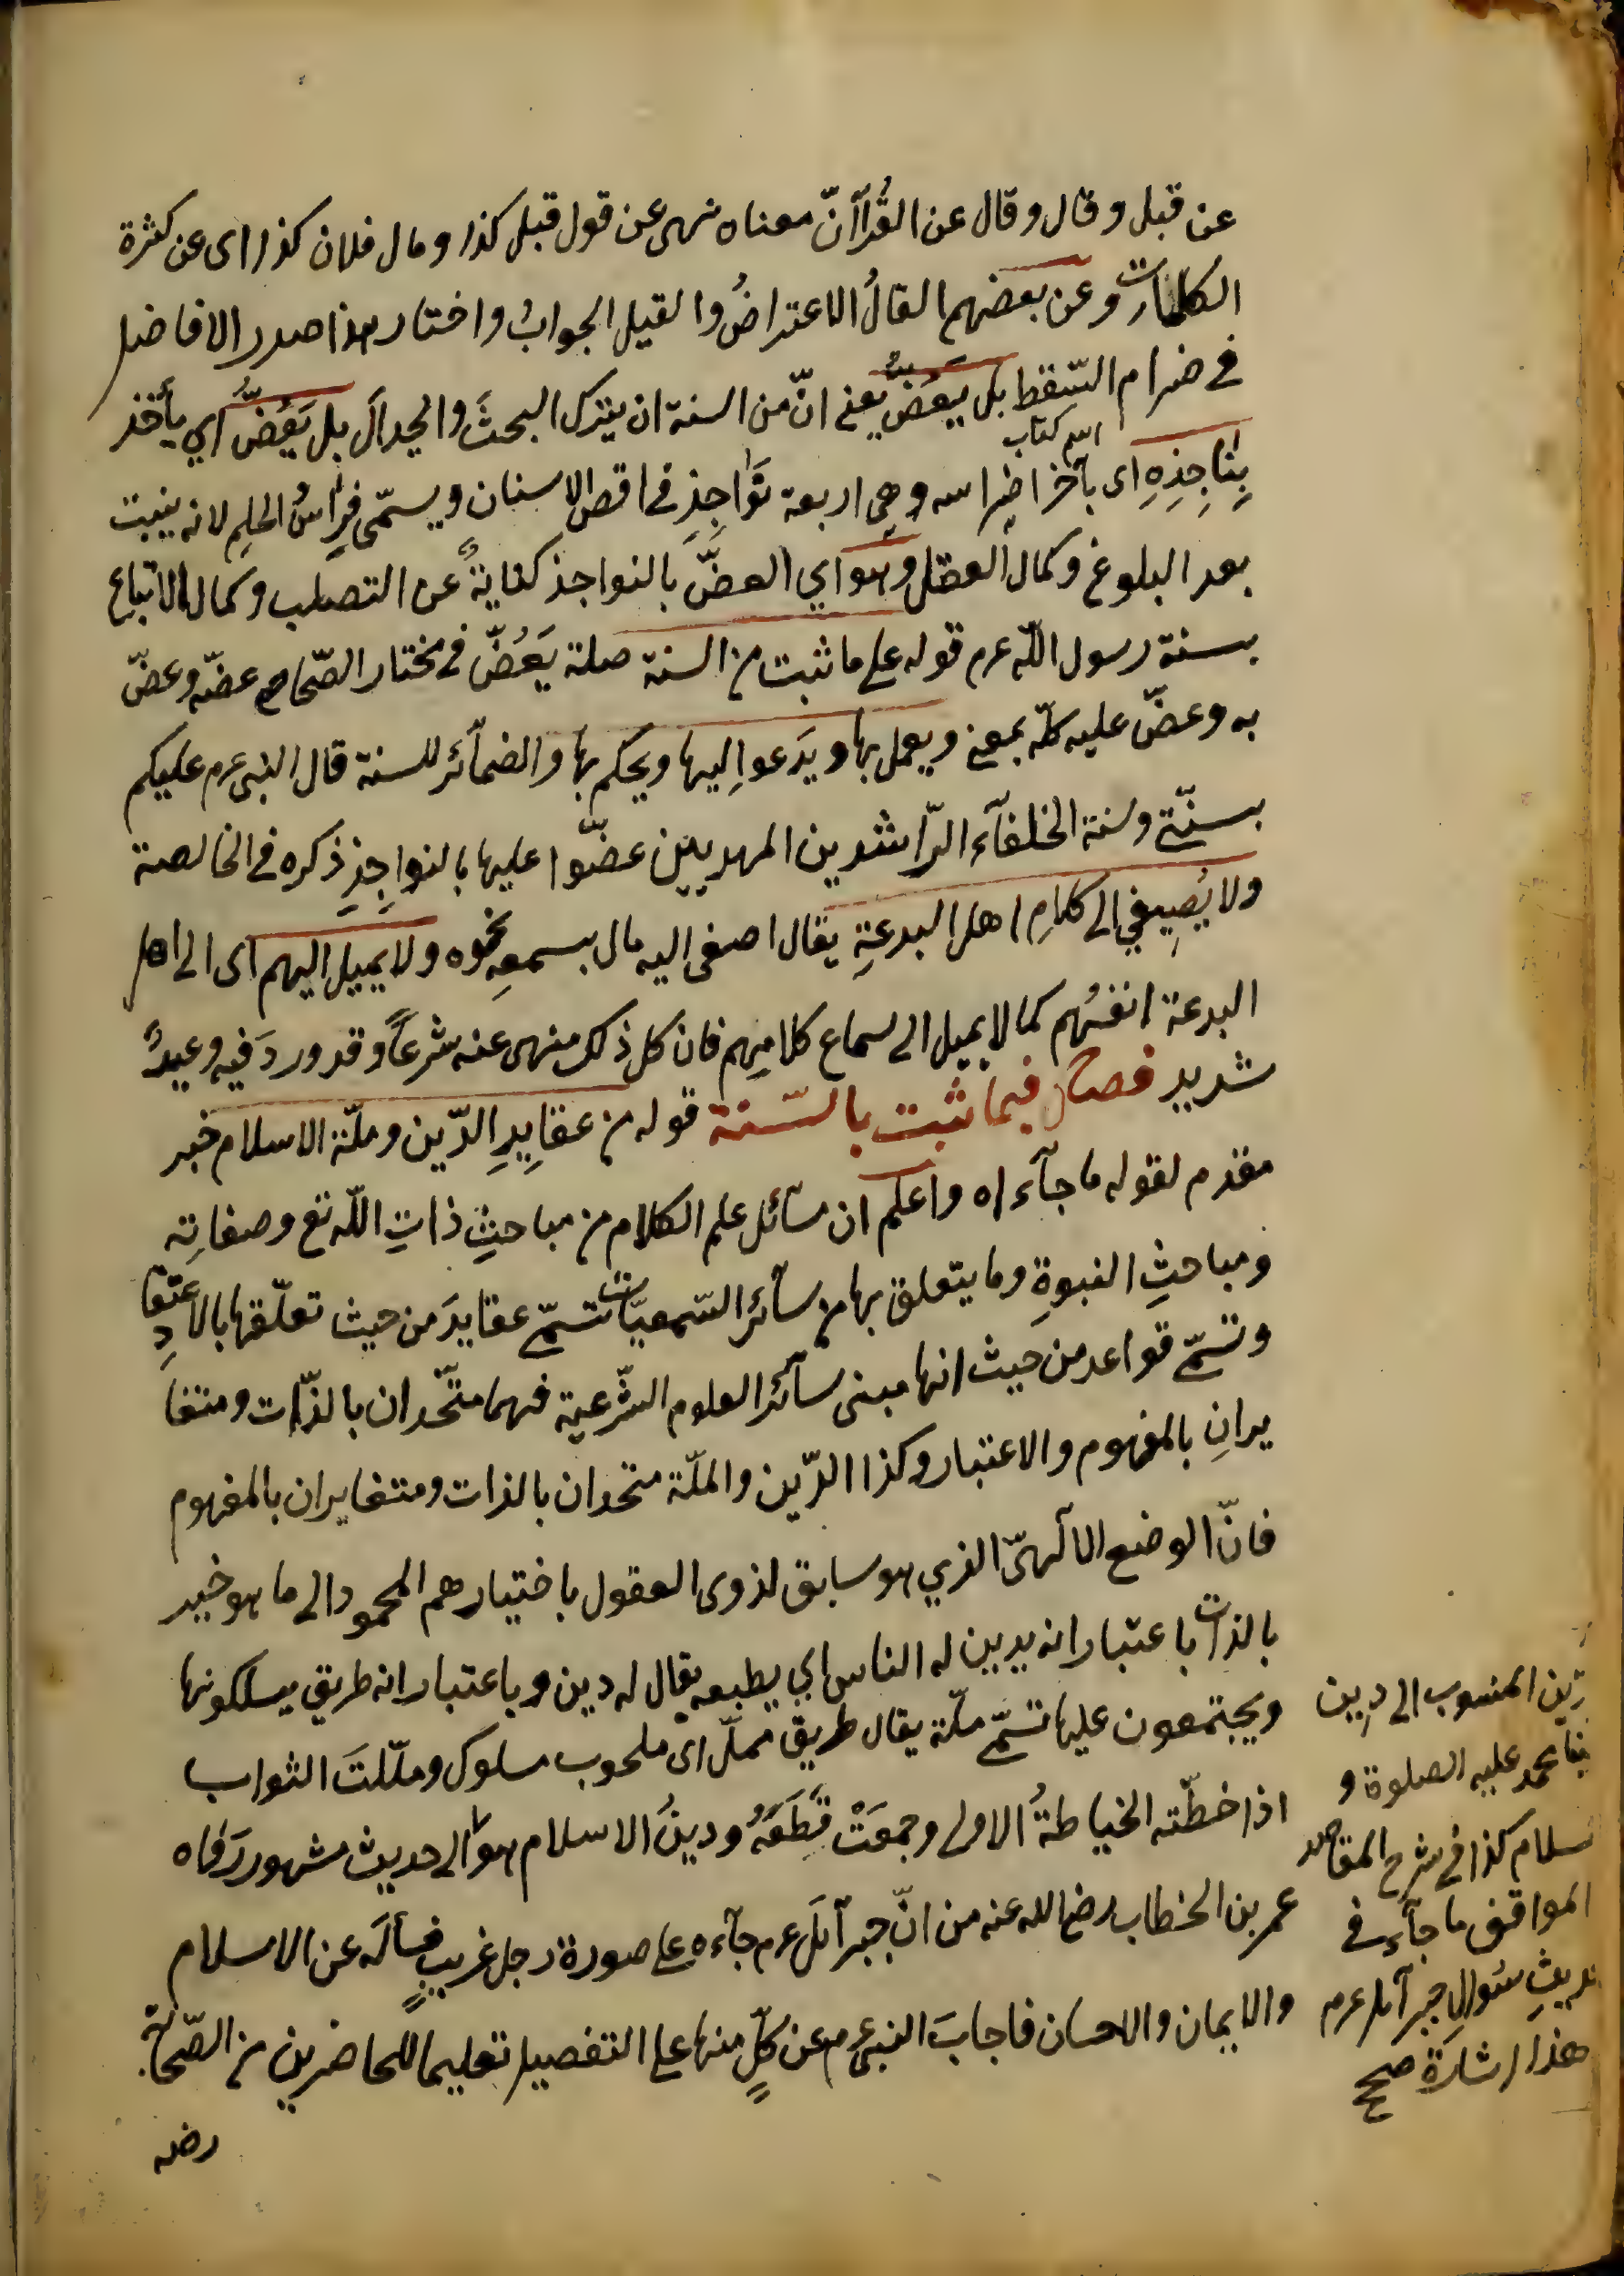 عن قيل وقال وقال عن الفُرّاء انّ معناه نهى عن قول قيل كذا وقال فلان كذا اى عن كثرة
الكلمات وعن بعضهم القالُ الاعتراضُ والقيل الجوابُ واختار هذا صدر الافاضل
فى ضرام السّقط بل يَعَضُّ يعنى انّ من السنة ان يترك البحثَ والجدالَ بل يَعَضُّ اي يأخذ
اسم كتاب
بِنَاجِذِهِ اى بآخر اضراسه وهى اربعة نَوَاجِذِ فى اقصى الاسنان ويسمّى ضراسُ الحلم لانه ينبت
بعد البلوغ وكمال العقل وهو اي العضّ بالنواجذ كنايةٌ عن التصلب وكمال الاتباع
بسنة رسول اللّه عم قوله على ما ثبت من السنة صلة يَعَضّ فى مختار الصّحاح عضّه وعضّ
به وعضّ عليه كلّه بمعنى ويعمل بها ويَدعوا إليها ويحكم بها والضمآئر للسنة قال النبى عم عليكم
بسنّتى وسنة الخلفآء الرّاشدين المهديين عضّوا عليها بالنواجِذِ ذكره فى الخالصة
ولا يُصِيغي الى كلامِ اهل البدعةِ يقال اصغى اليه مال بسمعِه نحوه ولا يميل اليهم اى الى اهل
البدعة انفسُهم كما لا يميل الى سماع كلامِهم فان كل ذلك منهى عنه شرعاً وقد وردَ فيه وعيدٌ
شديد فصل فيما ثبت بالسّنة قوله من عقايِدِ الدّين وملّة الاسلام خبر
مقدم لقوله ما جآء اه واعلم ان مسآئل علم الكلام من مباحثِ ذاتِ اللّه تع وصفاتِه
ومباحثِ النبوةِ وما يتعلق بها من سآئر السّمعيّات تسمّى عقايدَ من حيث تعلّقها بالاعتقادِ
وتسمّى قواعد من حيث انها مبنى سآئر العلوم الشّرعية فهما متّحدان بالذّات ومتغا
يرانِ بالمفهوم والاعتبار وكذا الدّين والملّة متحدان بالذات ومتغايران بالمفهوم
فانّ الوضع الآلهىّ الذي هو سابق لذوى العقول باختيارهم المحمود الى ما هو خير
بالذات باعتبار انه يدين له الناس اي يطيعه يقال له دين وباعتبار انه طريق يسلكونها
ويجتمعون عليها تسمّى ملّة يقال طريق مملّ اى ملحوب مسلوك وملّلتَ الثواب
اذا خطّته الخياطةُ الاولى وجمعَتْ قِطَعَهُ ودينُ الاسلام هو الى حديث مشهور رَوَاه
عمر بن الخطاب رضى الله عنه من انّ جبرآئل عم جآءه على صورة رجل غريبٍ فسألَه عن الاسلام
والايمان والاحسان فاجابَ النبى عم عن كلٍّ منها على التفصيل تعليما للحاضرين من الصّحابة
رضه
دين المنسوب الى دين
نبينا محمد عليه الصلوة و
سلام كذا فى شرح المقاصد
المواقف ما جآء فى
حديثِ سئوالِ جبرآئل عم
هذا اشارة صح